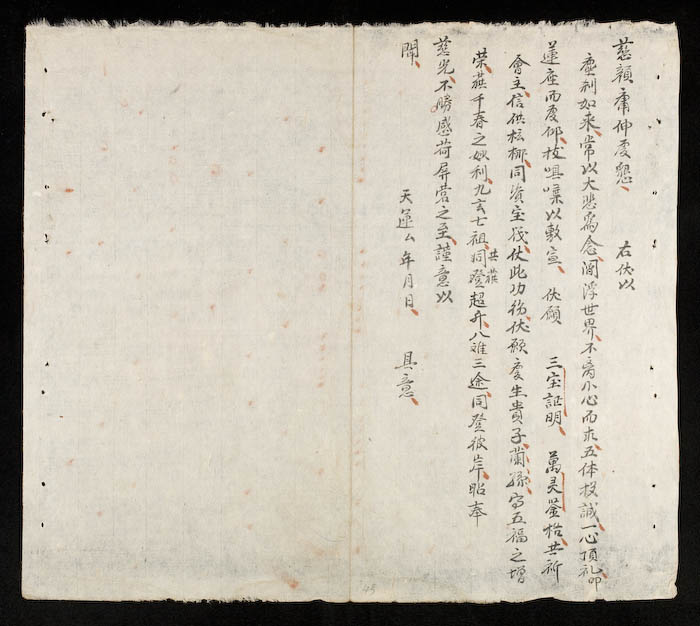 慈顏庸伸虔懇 右伏以
塵刹如来常以大悲爲念閻浮世界不离小心而求五体投誠一心頂礼叩
蓮座而虔仰校唄噪以敷宣 伏願 三宝証明 萬灵鉴格共祈
會主信供 同資宝筏伏此功德伏願慶生貴子蘭孫 五福之增
榮 千春之妙利九玄七祖同登超升八难三途同登彼岸昭奉
共
慈光不勝感荷屏营之至謹意以
聞
天運厶年月日 具意
45